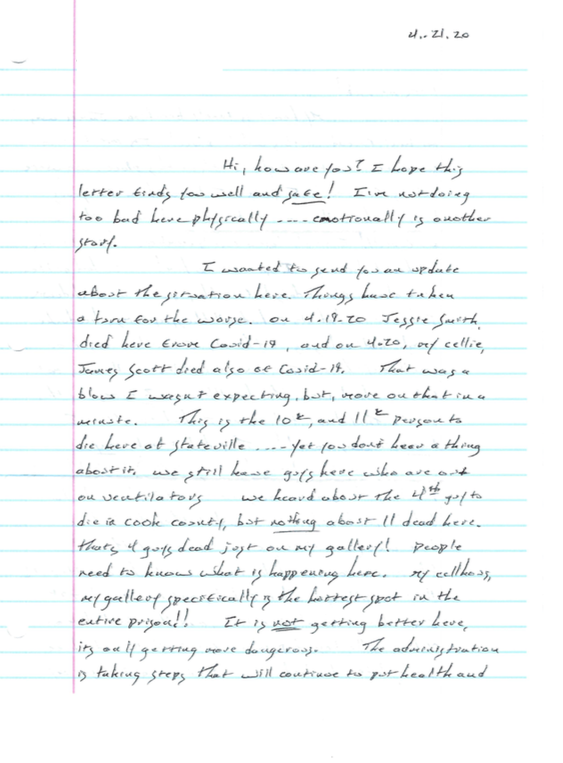 4.21.20
Hi, how are you? I hope this
letter finds you well and safe! I'm not doing
too bad here physically .... emotionally is another
story.
I wanted to send you an update
about the situation here. Things have taken
a turn for the worse. on 4.19.20 Jessie Smith,
died here from Covid-19, and on 4.20, my cellie,
James Scott died also of Covid-19. That was a
blow I wasn't expecting, but, more on that in a
minute. This is the 10th, and 11th person to
die here at Stateville .... yet you don't hear a thing
about it. we still have guys here who are out
on ventilators we heard about the 4th guy to
die in cook county, but nothing about 11 dead here.
thats 4 guys dead just on my gallery! People
need to know what is happening here. My cellhouse,
my gallery specifically is the hottest spot in the
entire prison!! It is not getting better here,
its only getting more dangerous. The administration
is taking steps that will continue to put health and